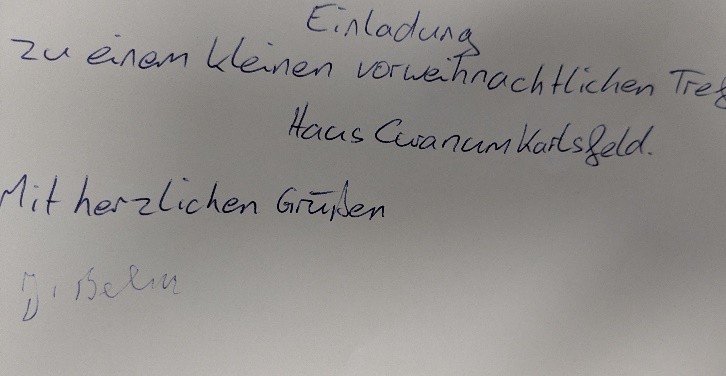 Einladung
zu einem kleinen vorweihnachtlichen Tref
Haus Curanum Karlsfeld.
Mit herzlichen Grüßen